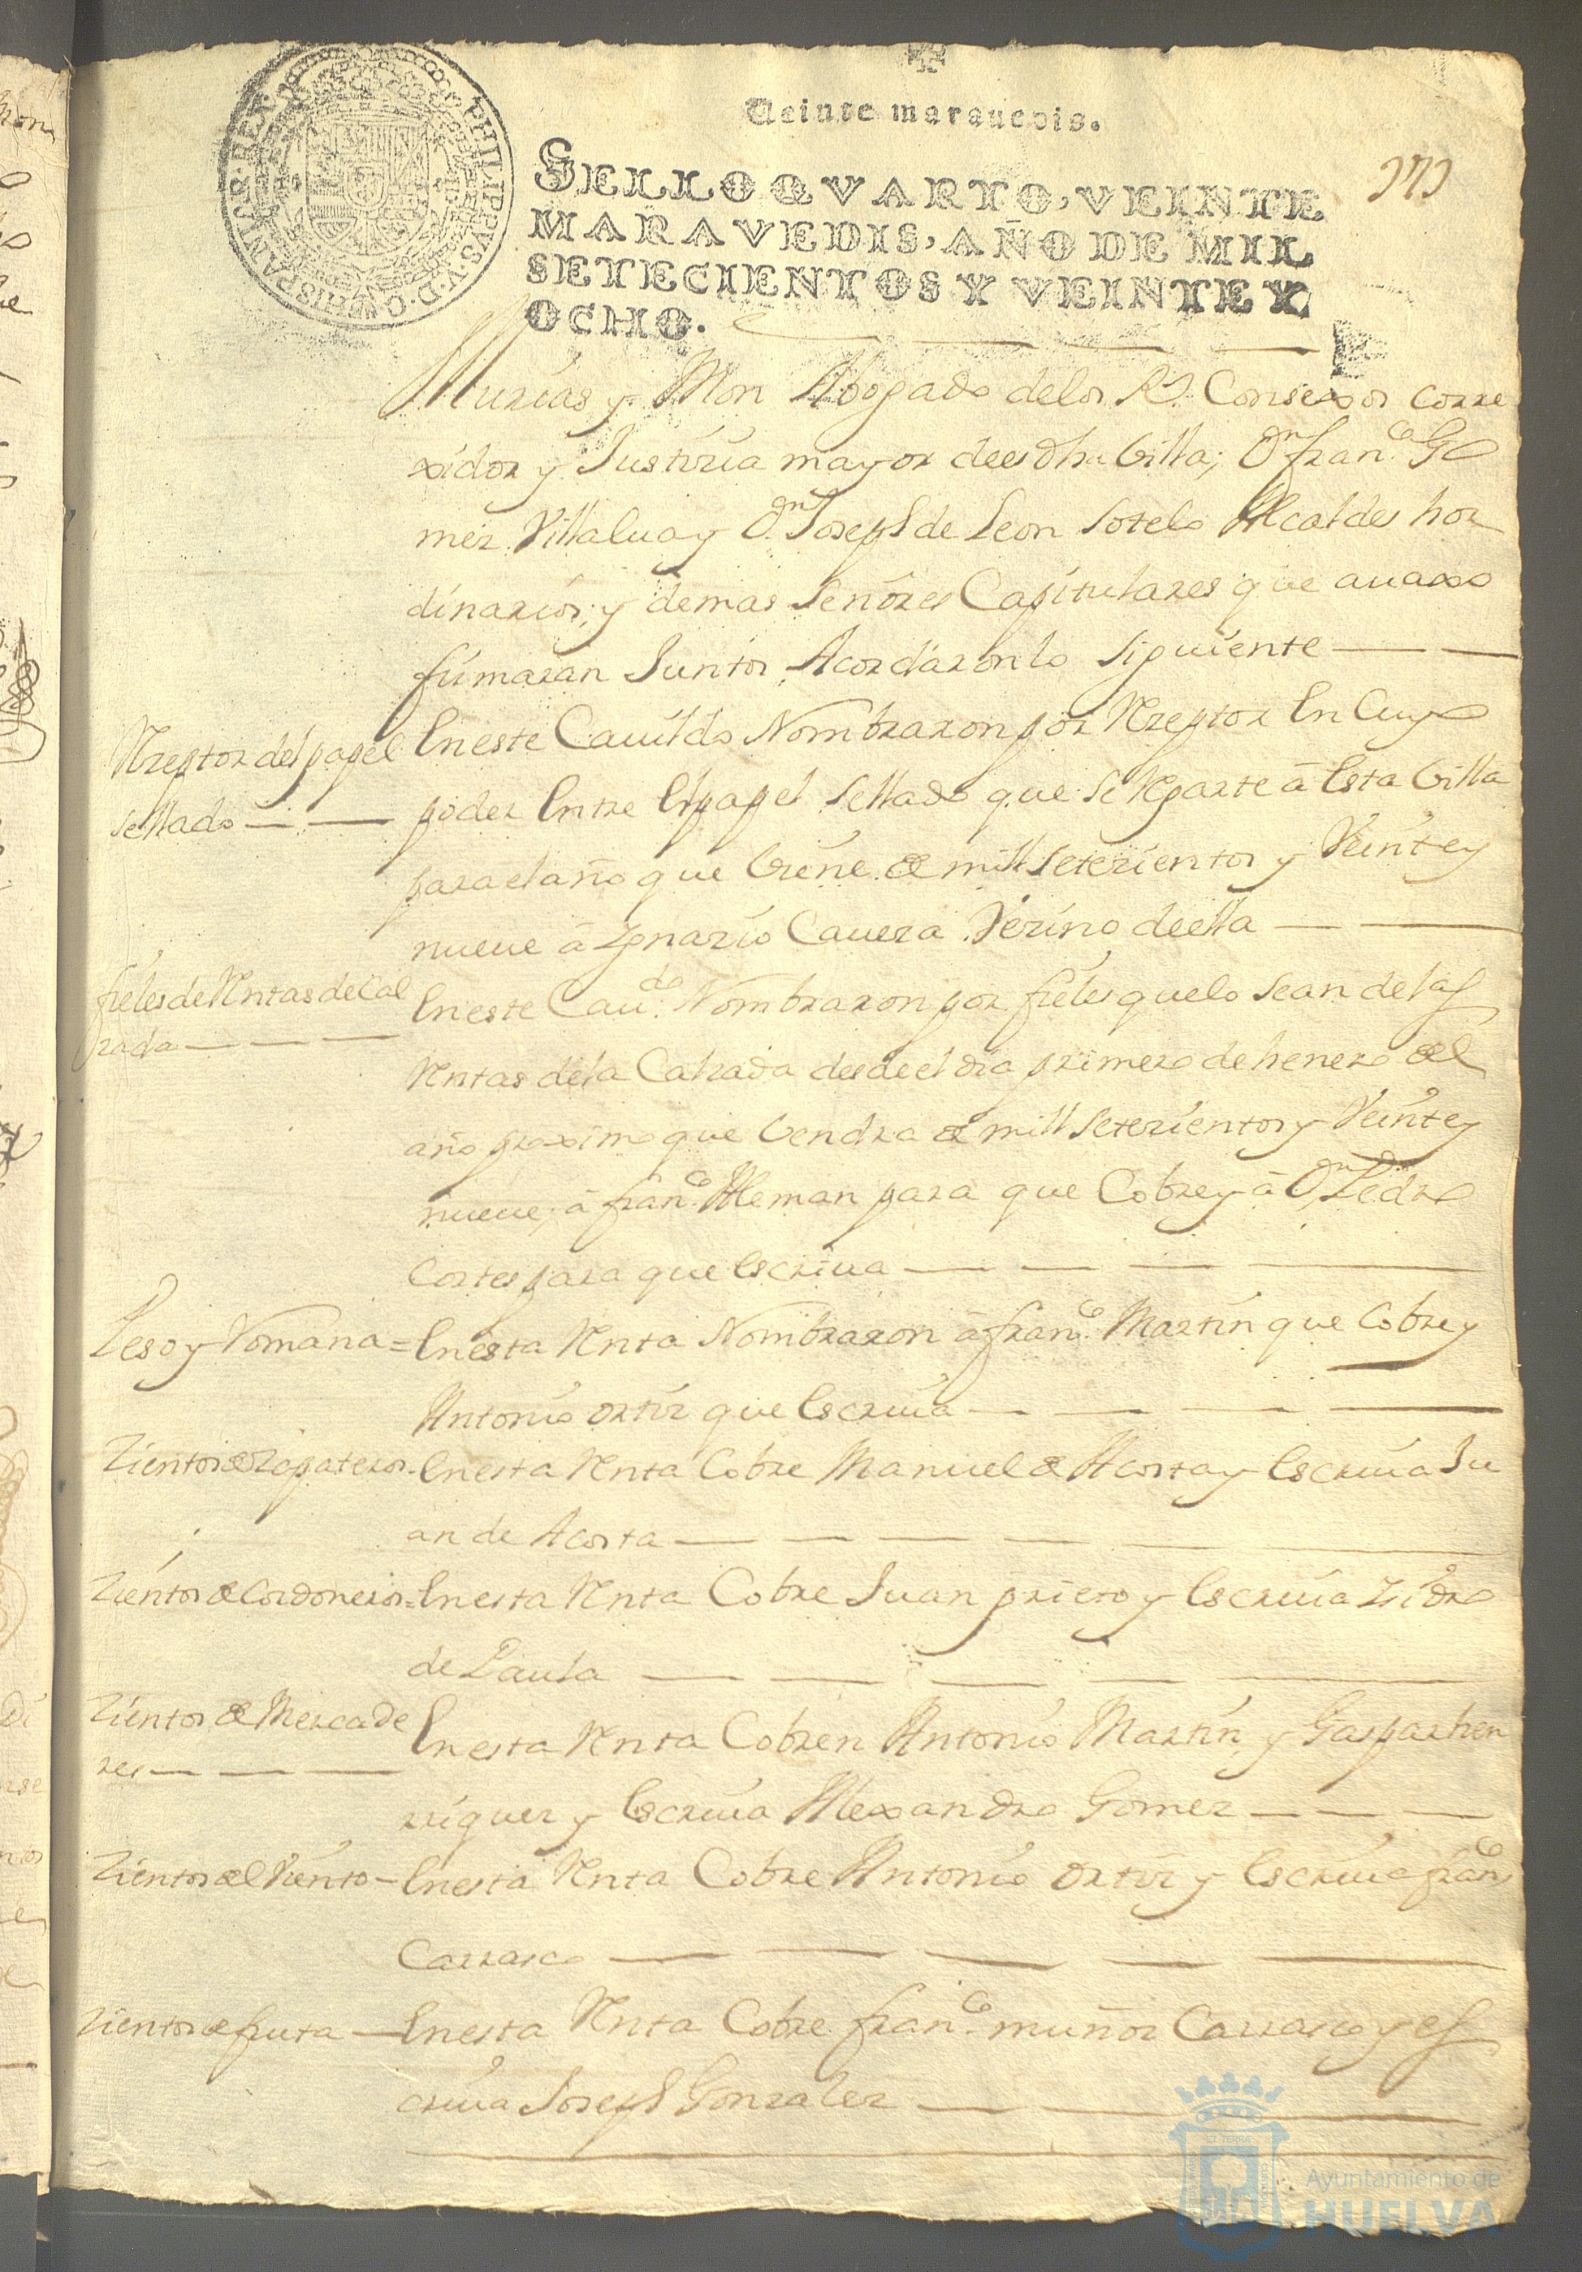 Veinte marauedis.
SELLO QVARTO, VEINTE
MARAVEDIS, AÑO DE MIL
SETECIENTOS Y VEINTE Y
OCHO.
PHILIPPVS·V·D·G·HISPANIAR·REX·
Murias y Mon Abogado delos Rs. Consexos corre
xidor y Justizia mayor deesdha Villa; Dn. franco. Go
mez Villalua y Dn. Joseph de Leon Sotelo Alcaldes hor
dinarios; y demas Señores Capitulares que auaxo
firmaran Juntos Acordaron lo siguiente
Rzeptor del papel
sellado
En este Cauildo Nombraron por Rzeptor En Cuyo
poder Entre Elpapel Sellado que se Reparte â Esta Villa
para el año que Viene de mill Setezientos y Veinte y
nueue â Ygnazio Caueza Vezino deella
fieles de Rentas de Cal
zada
En este Caudo. Nombraron por fieles quelo sean delas
Rentas dela Calzada desde el dia primero de henero del
año proximo que Vendra de mill Setezientos y Veinte y
nueue; â franco. Aleman para que Cobre y â Dn. Pedro
Cortes para que Escriua
Peso y Romana =
En esta Renta Nombraron â franco. Martin que Cobre y
Antonio Ortiz que Escriua
Zientos de Zapateros
En esta Renta Cobre Manuel de Acosta y Escriua Ju
an de Acosta
Zientos de Cordoneros =
En esta Renta Cobre Juan prieto y Escriua Zidro
de Paula
Zientos de Mercade
res
En esta Renta Cobren Antonio Martin, y Gaspar hen
rriquez y Escriua Alexandro Gomez
Zientos del Viento
En esta Renta Cobre Antonio Ortiz y Escriua franco.
Carrasco
Zientos de fruta
En esta Renta Cobre franco. muñoz Carrasco y es
criua Joseph Gonzalez
Ayuntamiento de
HUELVA